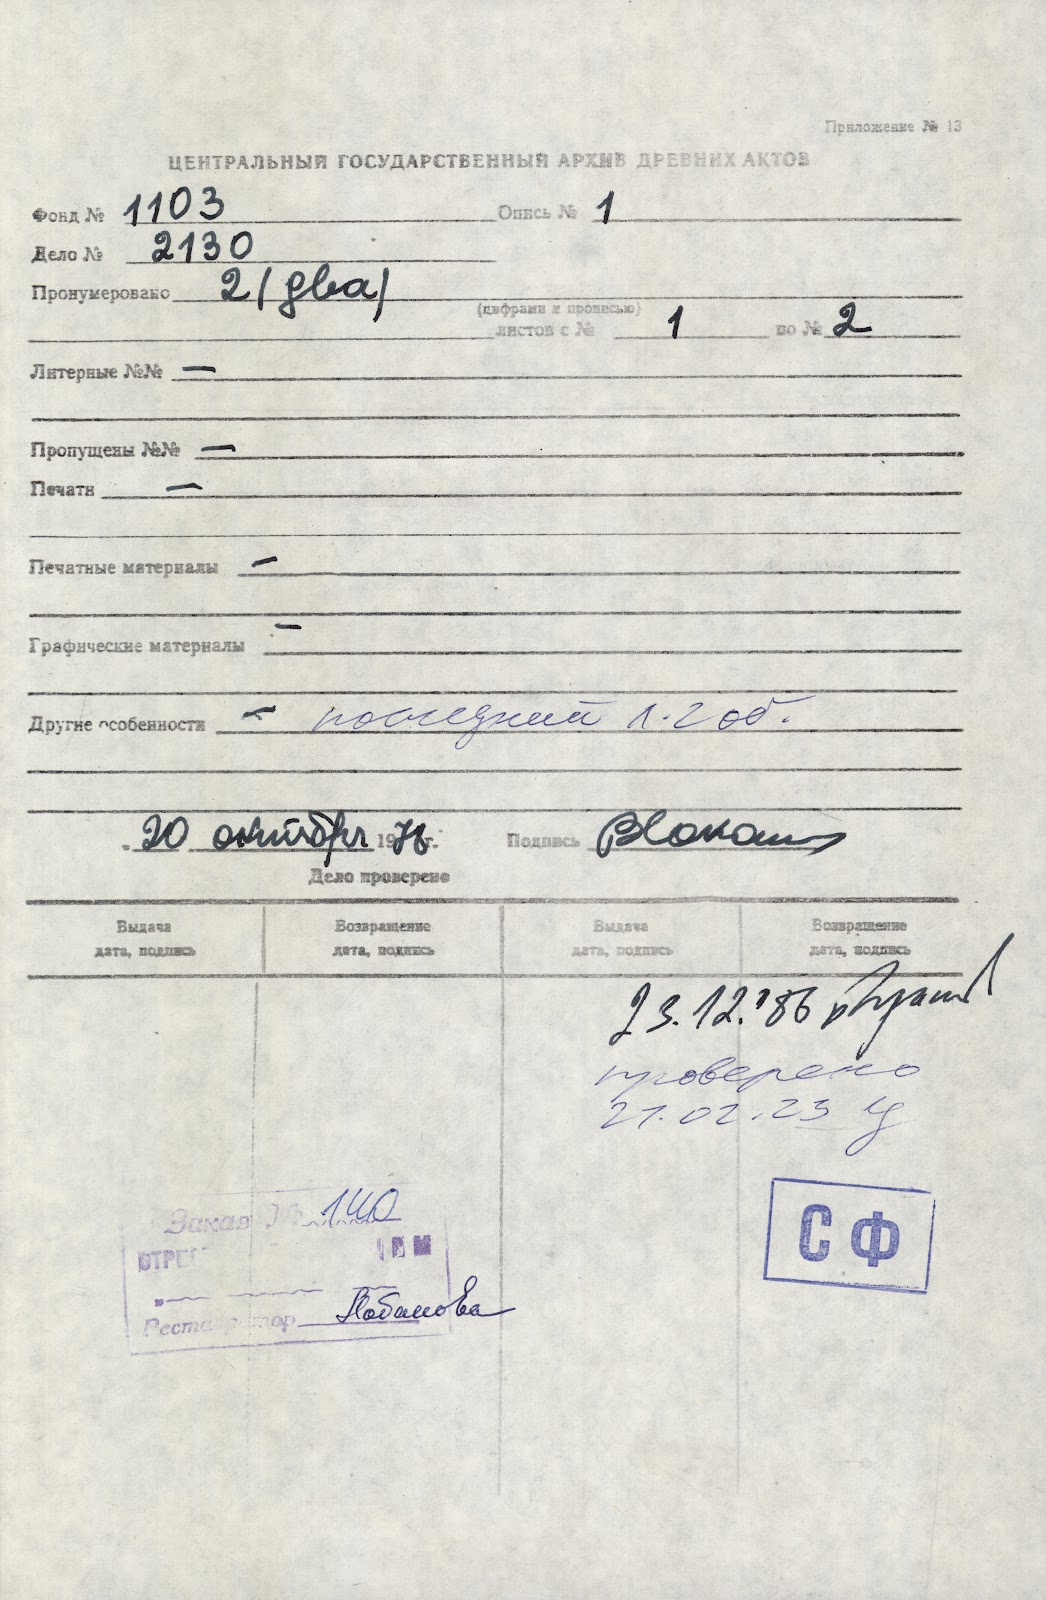 Приложение № 13
ЦЕНТРАЛЬНЫЙ ГОСУДАРСТВЕННЫЙ АРХИВ ДРЕВНИХ АКТОВ
Фонд № 1103 Опись № 1
Дело № 2130
Пронумеровано 2 (два)
(цифрами и прописью)
листов с № 1 по № 2
Литерные №№ —
Пропущены №№ —
Печати —
Печатные материалы —
Графические материалы —
Другие особенности — последний л. 2 об.
20 октября 1976 г. Подпись
Дело проверено
Выдача Возвращение Выдача Возвращение
дата, подпись дата, подпись дата, подпись дата, подпись
23.12.'86
проверено
21.02.23
Заказ № 140
СФ
Реставратор Лобанова